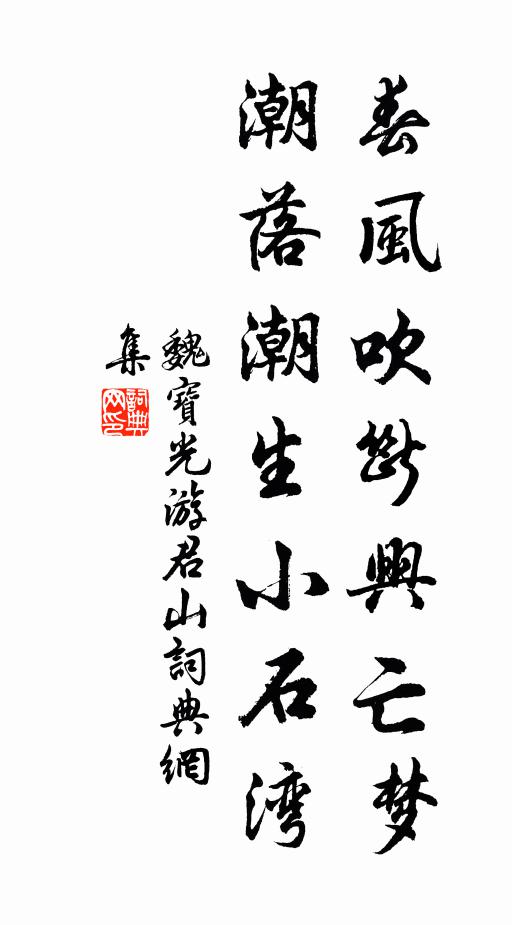 春風吹斷興亡梦
潮落潮生小石湾
魏寶光游君山詞典網
集
詞典网印